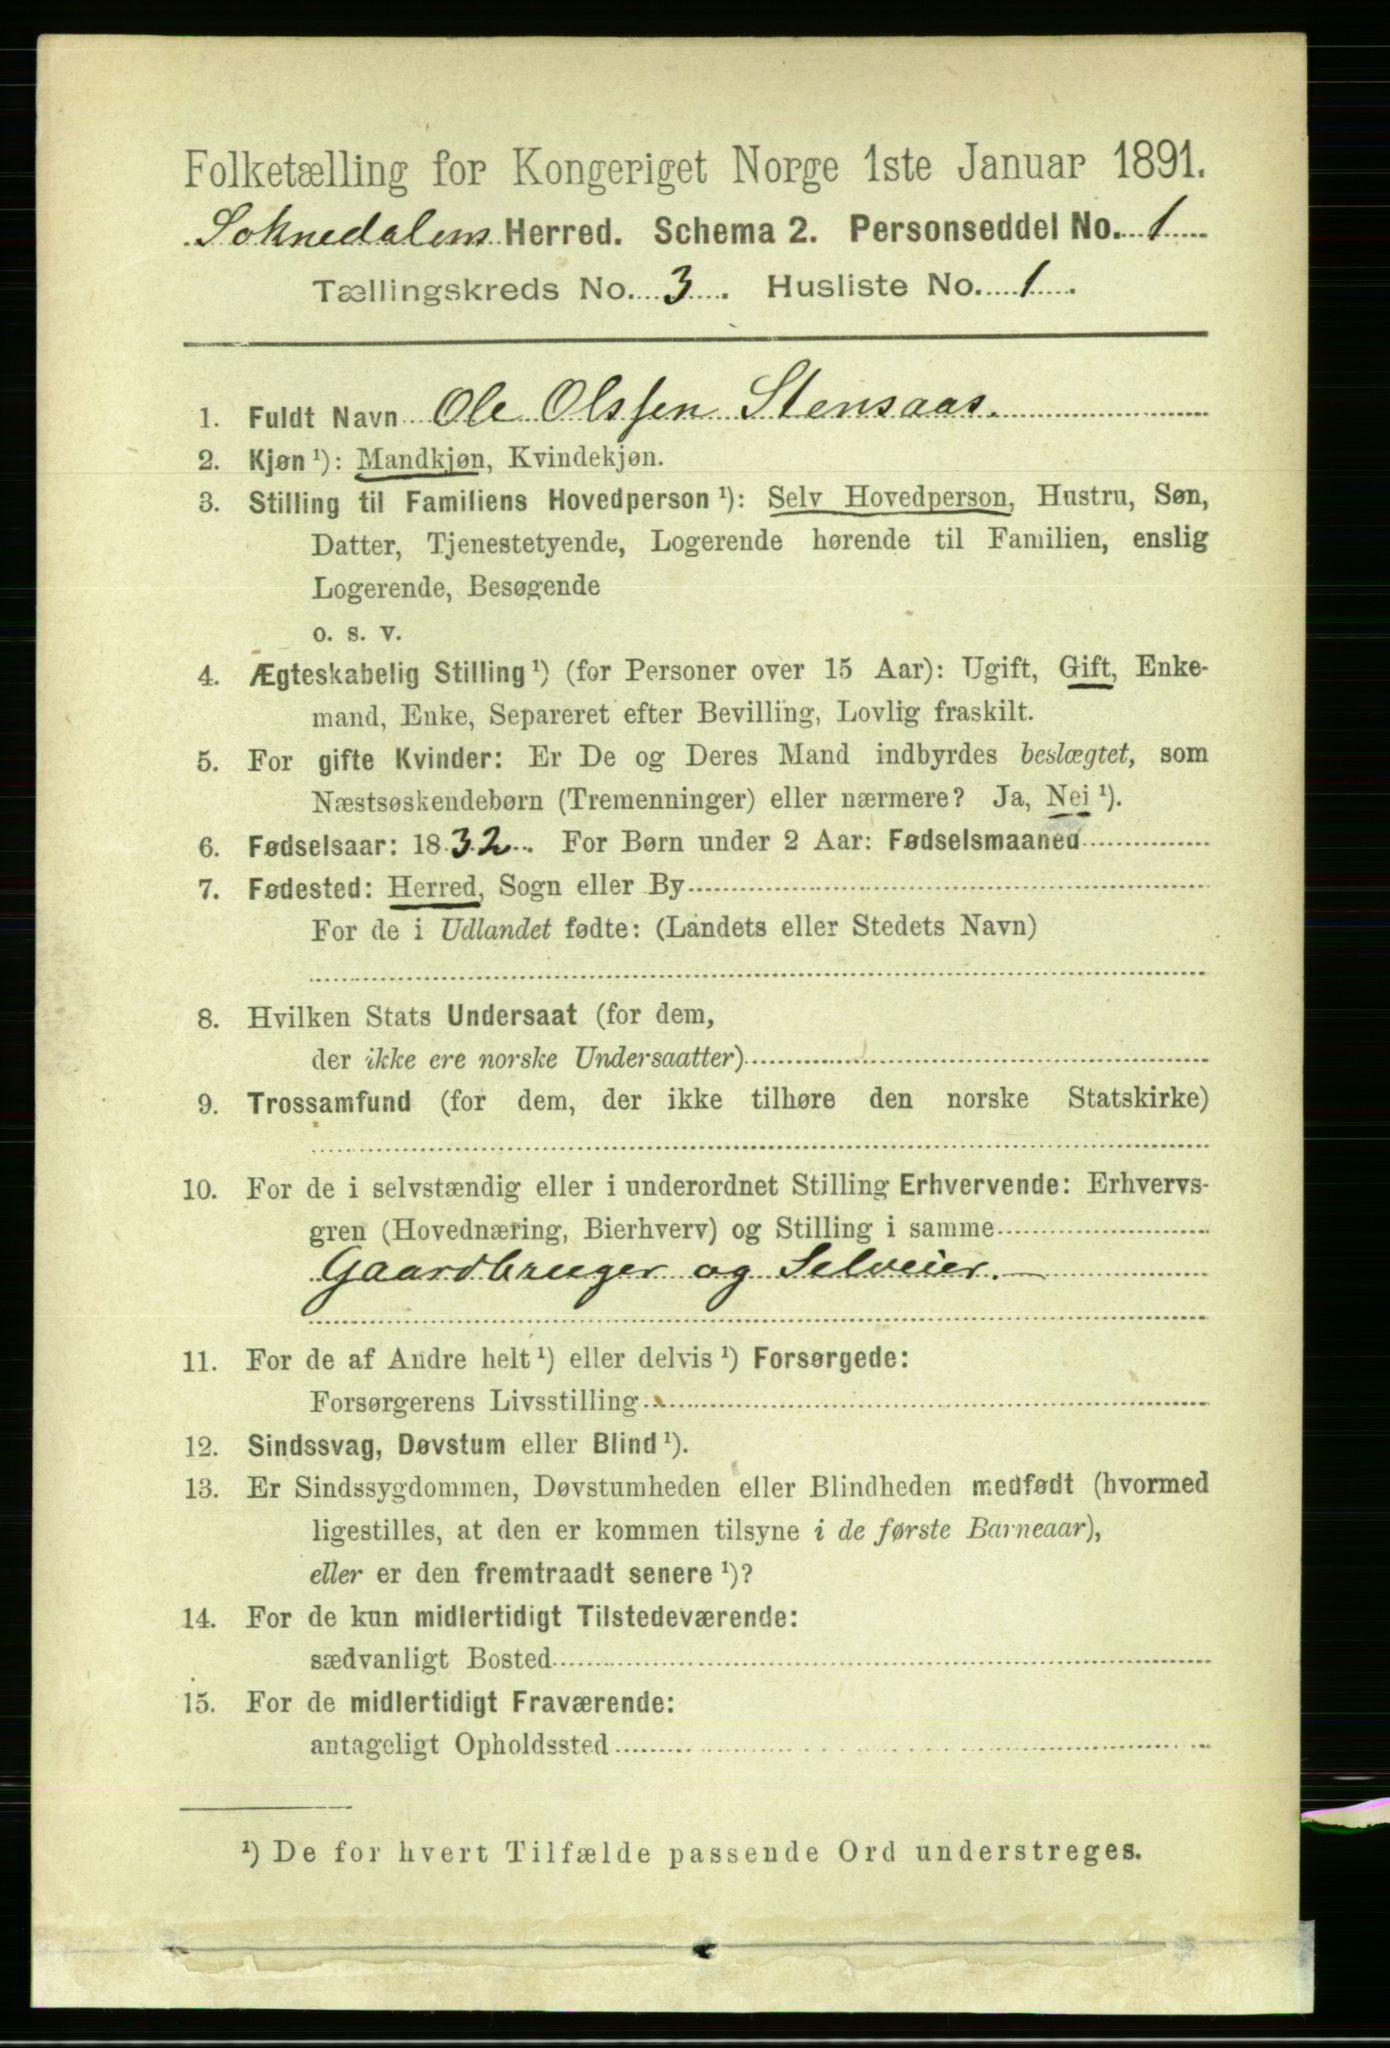 Folketælling for Kongeriget Norge 1ste Januar 1891.
Soknedalens Herred. Schema 2. Personseddel No. 1
Tællingskreds No. 3. Husliste No. 1.
1. Fuldt Navn Ole Olssen Stensaas.
2. Kjøn ¹): Mandkjøn, Kvindekjøn.
3. Stilling til Familiens Hovedperson ¹): Selv Hovedperson, Hustru, Søn,
Datter, Tjenestetyende, Logerende hørende til Familien, enslig
Logerende, Besøgende
o. s. v.
4. Ægteskabelig Stilling ¹) (for Personer over 15 Aar): Ugift, Gift, Enke-
mand, Enke, Separeret efter Bevilling, Lovlig fraskilt.
5. For gifte Kvinder: Er De og Deres Mand indbyrdes beslægtet, som
Næstsøskendebørn (Tremenninger) eller nærmere? Ja, Nei ¹).
6. Fødselsaar: 1832. For Børn under 2 Aar: Fødselsmaaned
7. Fødested: Herred, Sogn eller By
For de i Udlandet fødte: (Landets eller Stedets Navn)
8. Hvilken Stats Undersaat (for dem,
der ikke ere norske Undersaatter)
9. Trossamfund (for dem, der ikke tilhøre den norske Statskirke)
10. For de i selvstændig eller i underordnet Stilling Erhvervende: Erhvervs-
gren (Hovednæring, Bierhverv) og Stilling i samme
Gaardbruger og Selveier.
11. For de af Andre helt ¹) eller delvis ¹) Forsørgede:
Forsørgerens Livsstilling
12. Sindssvag, Døvstum eller Blind ¹).
13. Er Sindssygdommen, Døvstumheden eller Blindheden medfødt (hvormed
ligestilles, at den er kommen tilsyne i de første Barneaar),
eller er den fremtraadt senere ¹)?
14. For de kun midlertidigt Tilstedeværende:
sædvanligt Bosted
15. For de midlertidigt Fraværende:
antageligt Opholdssted
¹) De for hvert Tilfælde passende Ord understreges.